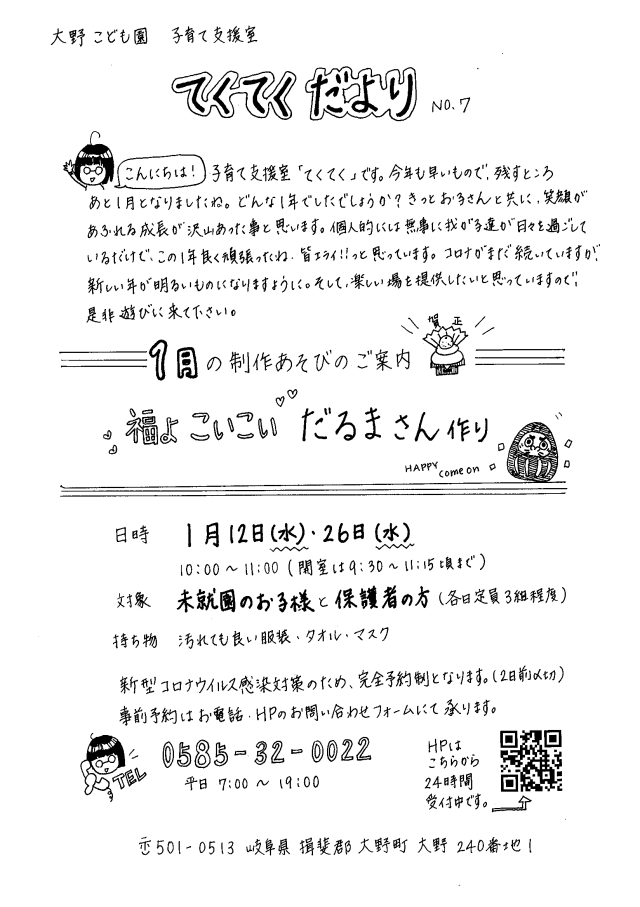 大野こども園 子育て支援室
てくてくだより NO.7
こんにちは! 子育て支援室「てくてく」です。今年も早いもので、残すところ
あと1月となりましたね。どんな1年でしたでしょうか?きっとお子さんと共に、笑顔が
あふれる成長が沢山あった事と思います。個人的には無事に我が子達が日々を過ごして
いるだけで、この1年良く頑張ったね、皆エライ!!っと思っています。コロナがまだ続いていますが、
新しい年が明るいものになりますように。そして、楽しい場を提供したいと思っていますので、
是非遊びに来て下さい。
賀正
1月の制作あそびのご案内
福よこいこい だるまさん作り
HAPPY come on
日時 1月12日(水)・26日(水)
10:00〜11:00(開室は9:30〜11:15頃まで)
対象 未就園のお子様と保護者の方(各日定員3組程度)
持ち物 汚れても良い服装・タオル・マスク
新型コロナウイルス感染対策のため、完全予約制となります。(2日前〆切)
事前予約はお電話・HPのお問い合わせフォームにて承ります。
TEL 0585-32-0022
平日 7:00〜19:00
HPは
こちらから
24時間
受付中です。
〒501-0513 岐阜県 揖斐郡 大野町 大野 240番地1